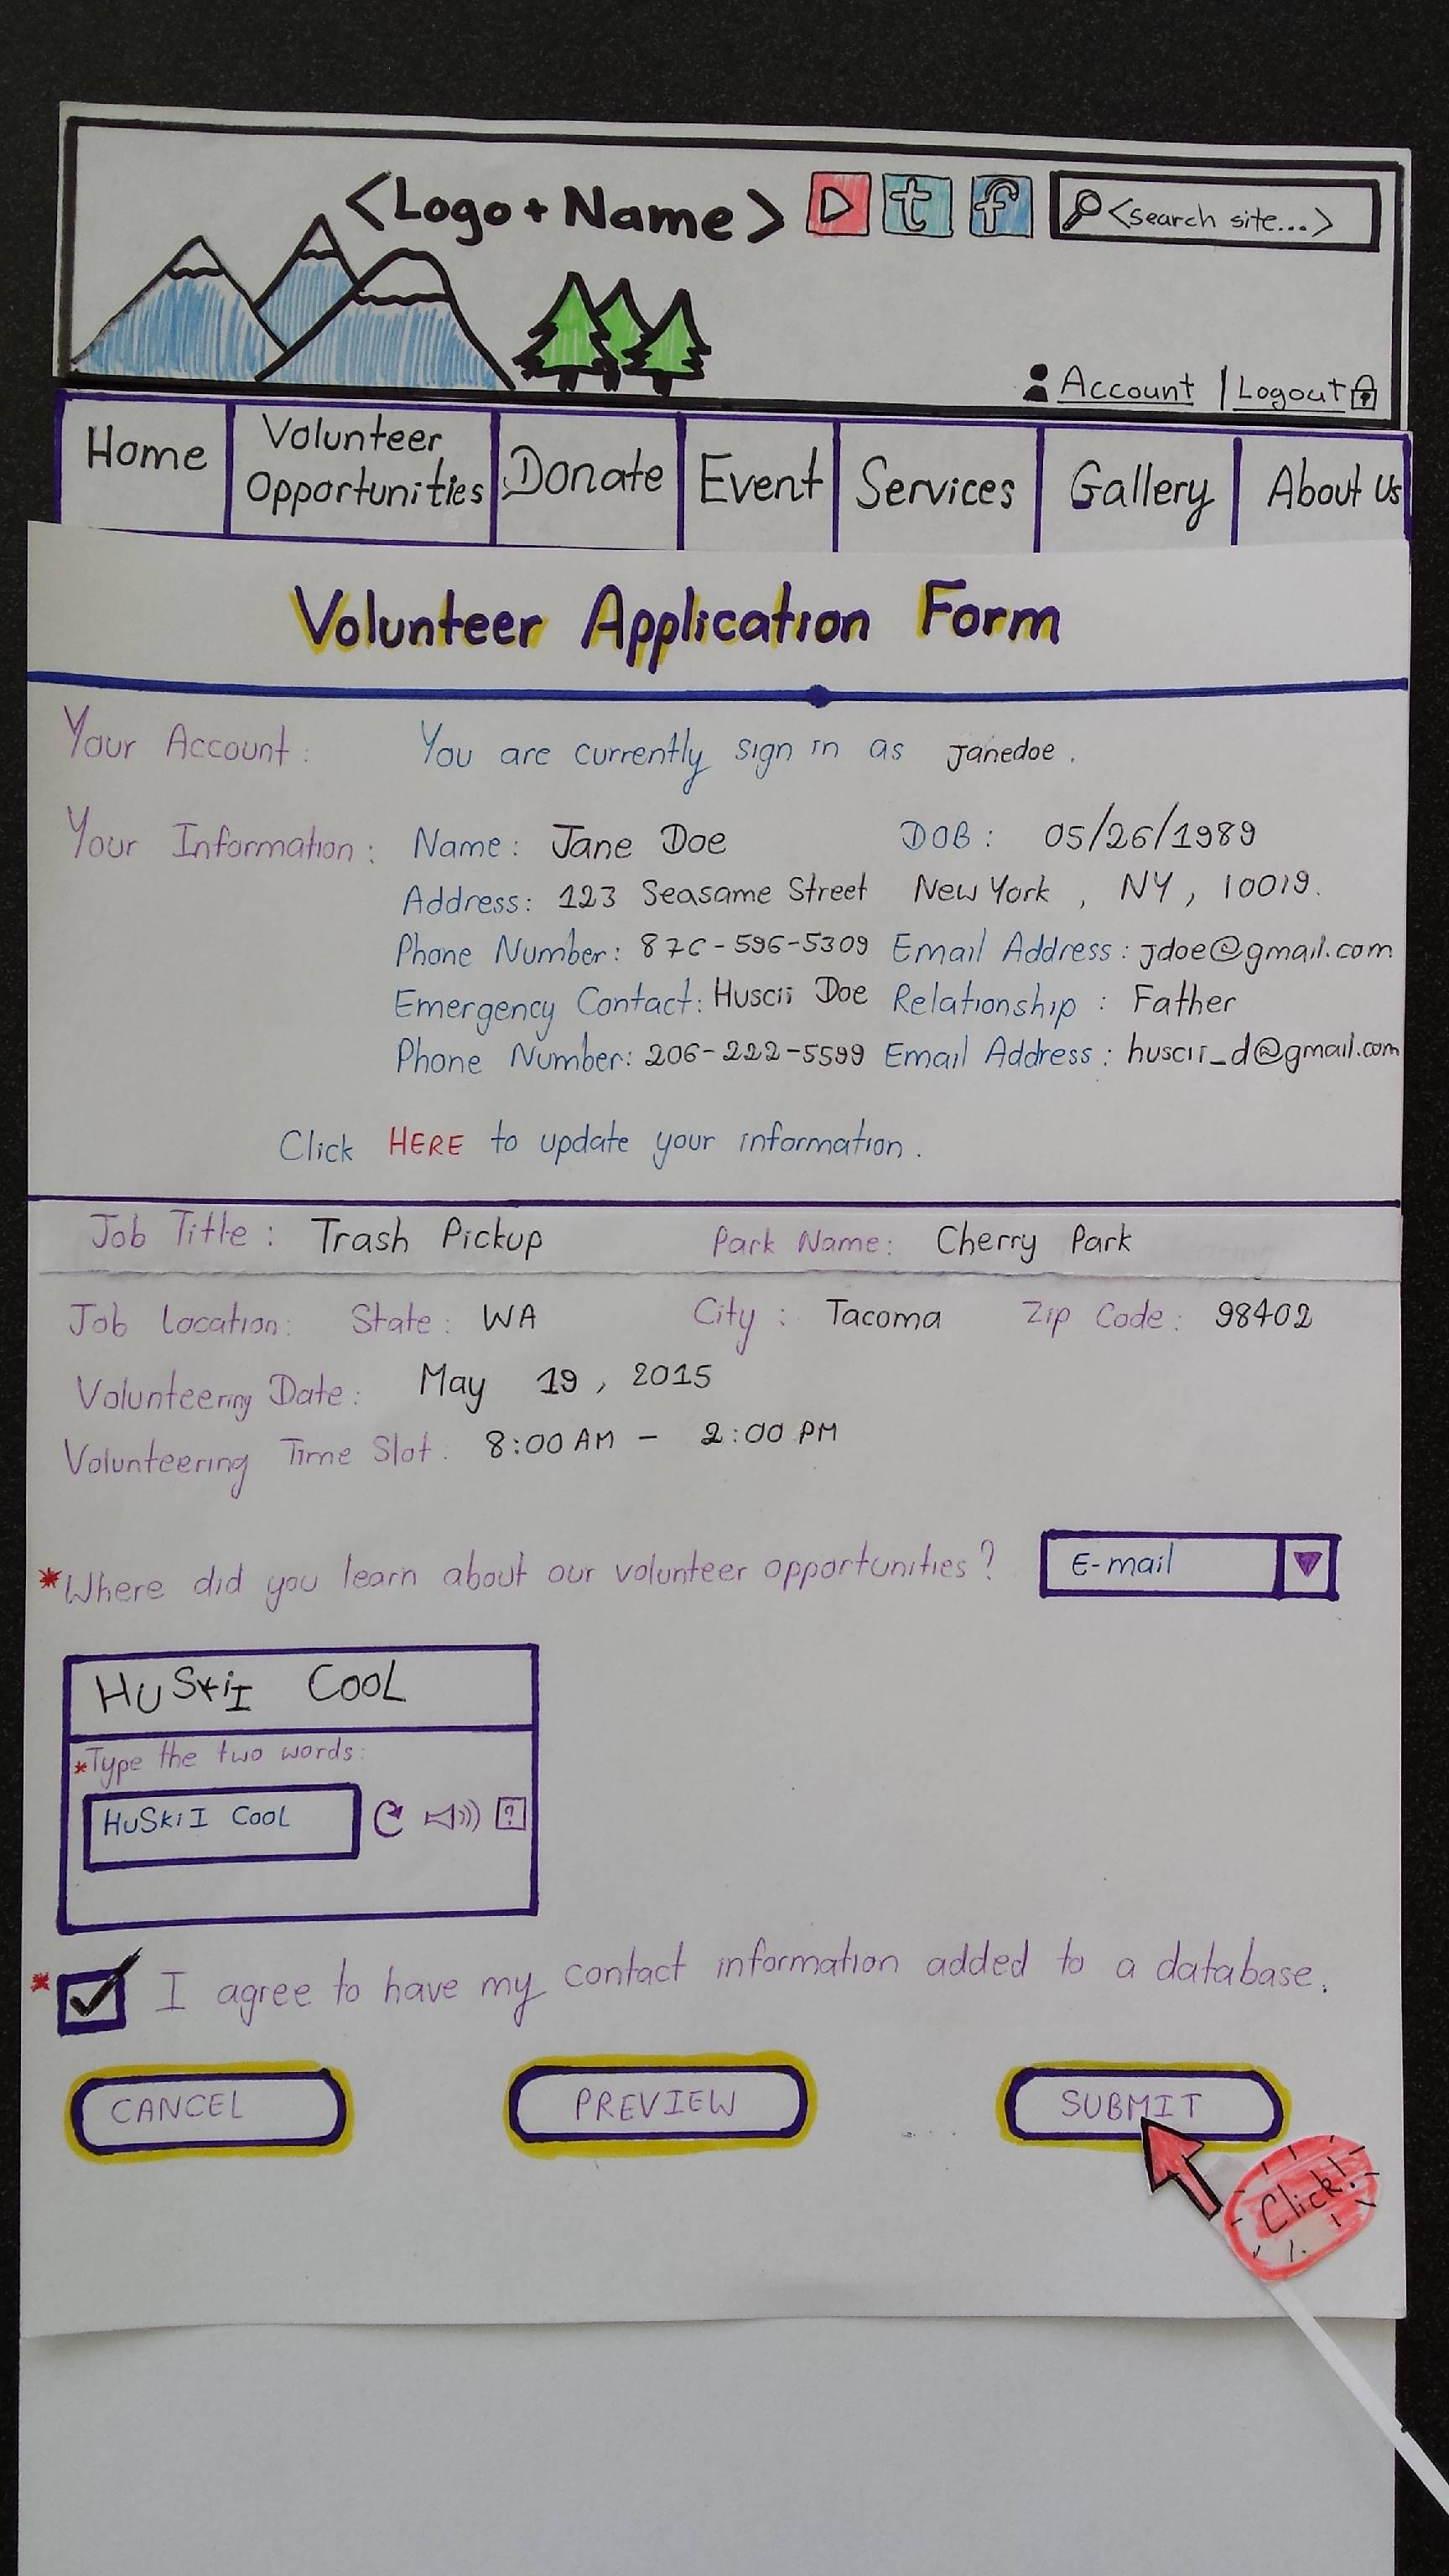 <Logo + Name> t f <search site...>
Account | Logout
Home Volunteer Opportunities Donate Event Services Gallery About Us
Volunteer Application Form
Your Account: You are currently sign in as janedoe.
Your Information: Name: Jane Doe DOB: 05/26/1989
Address: 123 Seasame Street New York, NY, 10019.
Phone Number: 876-596-5309 Email Address: jdoe@gmail.com
Emergency Contact: Huscii Doe Relationship: Father
Phone Number: 206-222-5599 Email Address: huscii_d@gmail.com
Click HERE to update your information.
Job Title: Trash Pickup Park Name: Cherry Park
Job Location: State: WA City: Tacoma Zip Code: 98402
Volunteering Date: May 19, 2015
Volunteering Time Slot: 8:00 AM - 2:00 PM
*Where did you learn about our volunteer opportunities? E-mail
HUSkiI COOL
*Type the two words:
HuSkiI COOL ?
* I agree to have my contact information added to a database.
CANCEL PREVIEW SUBMIT
Click!